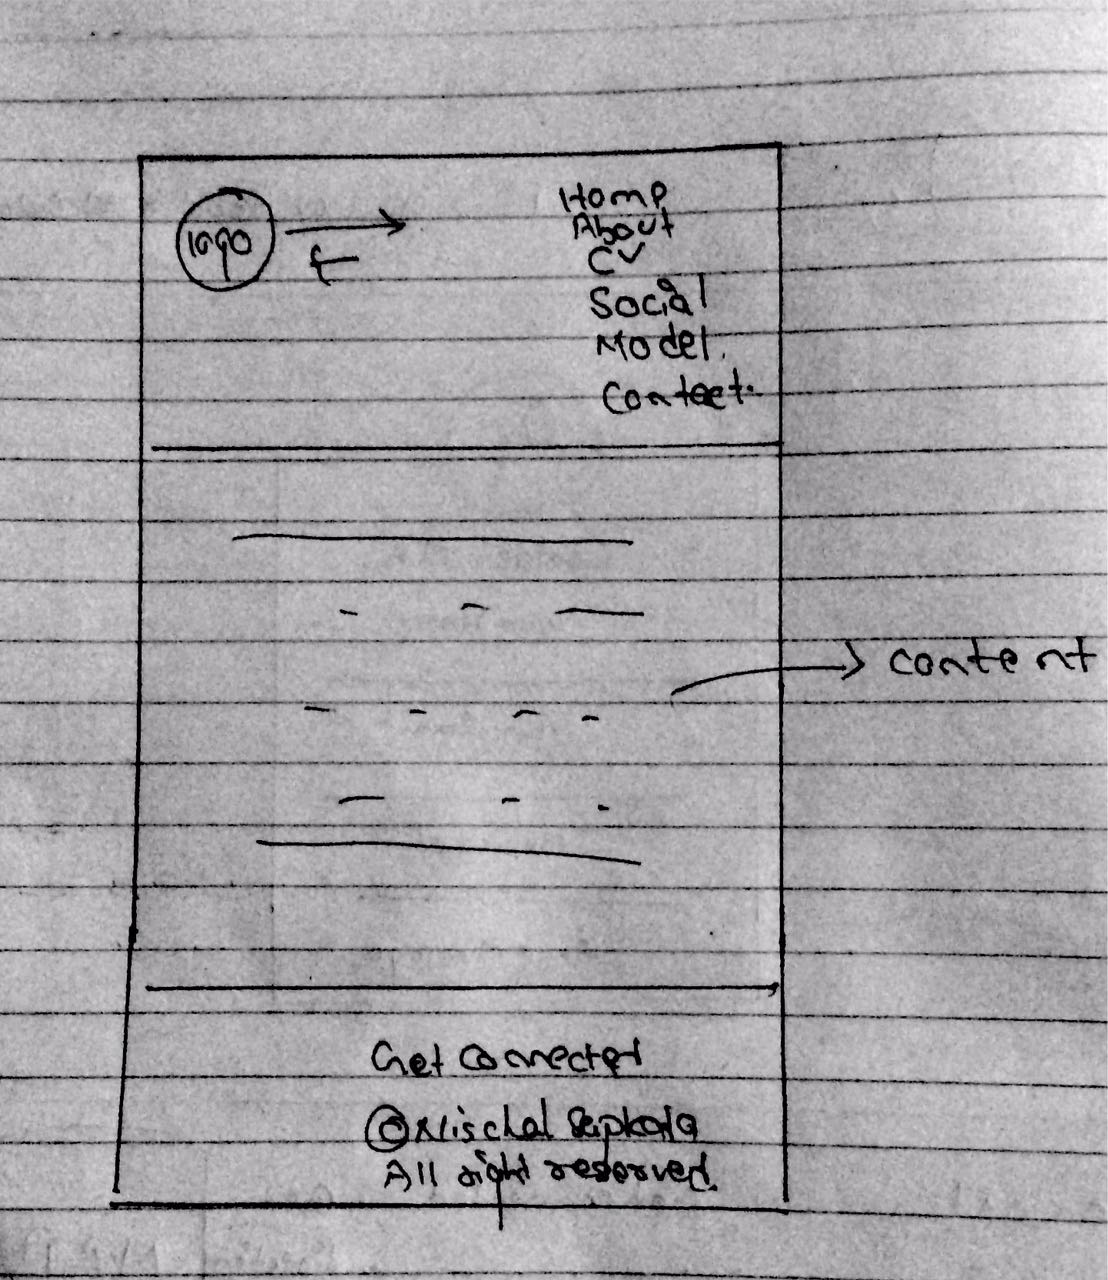 logo
Home
About
CV
Social
Model.
Contact.
content
Get connected
© Nischal Sapkota
All right reserved.